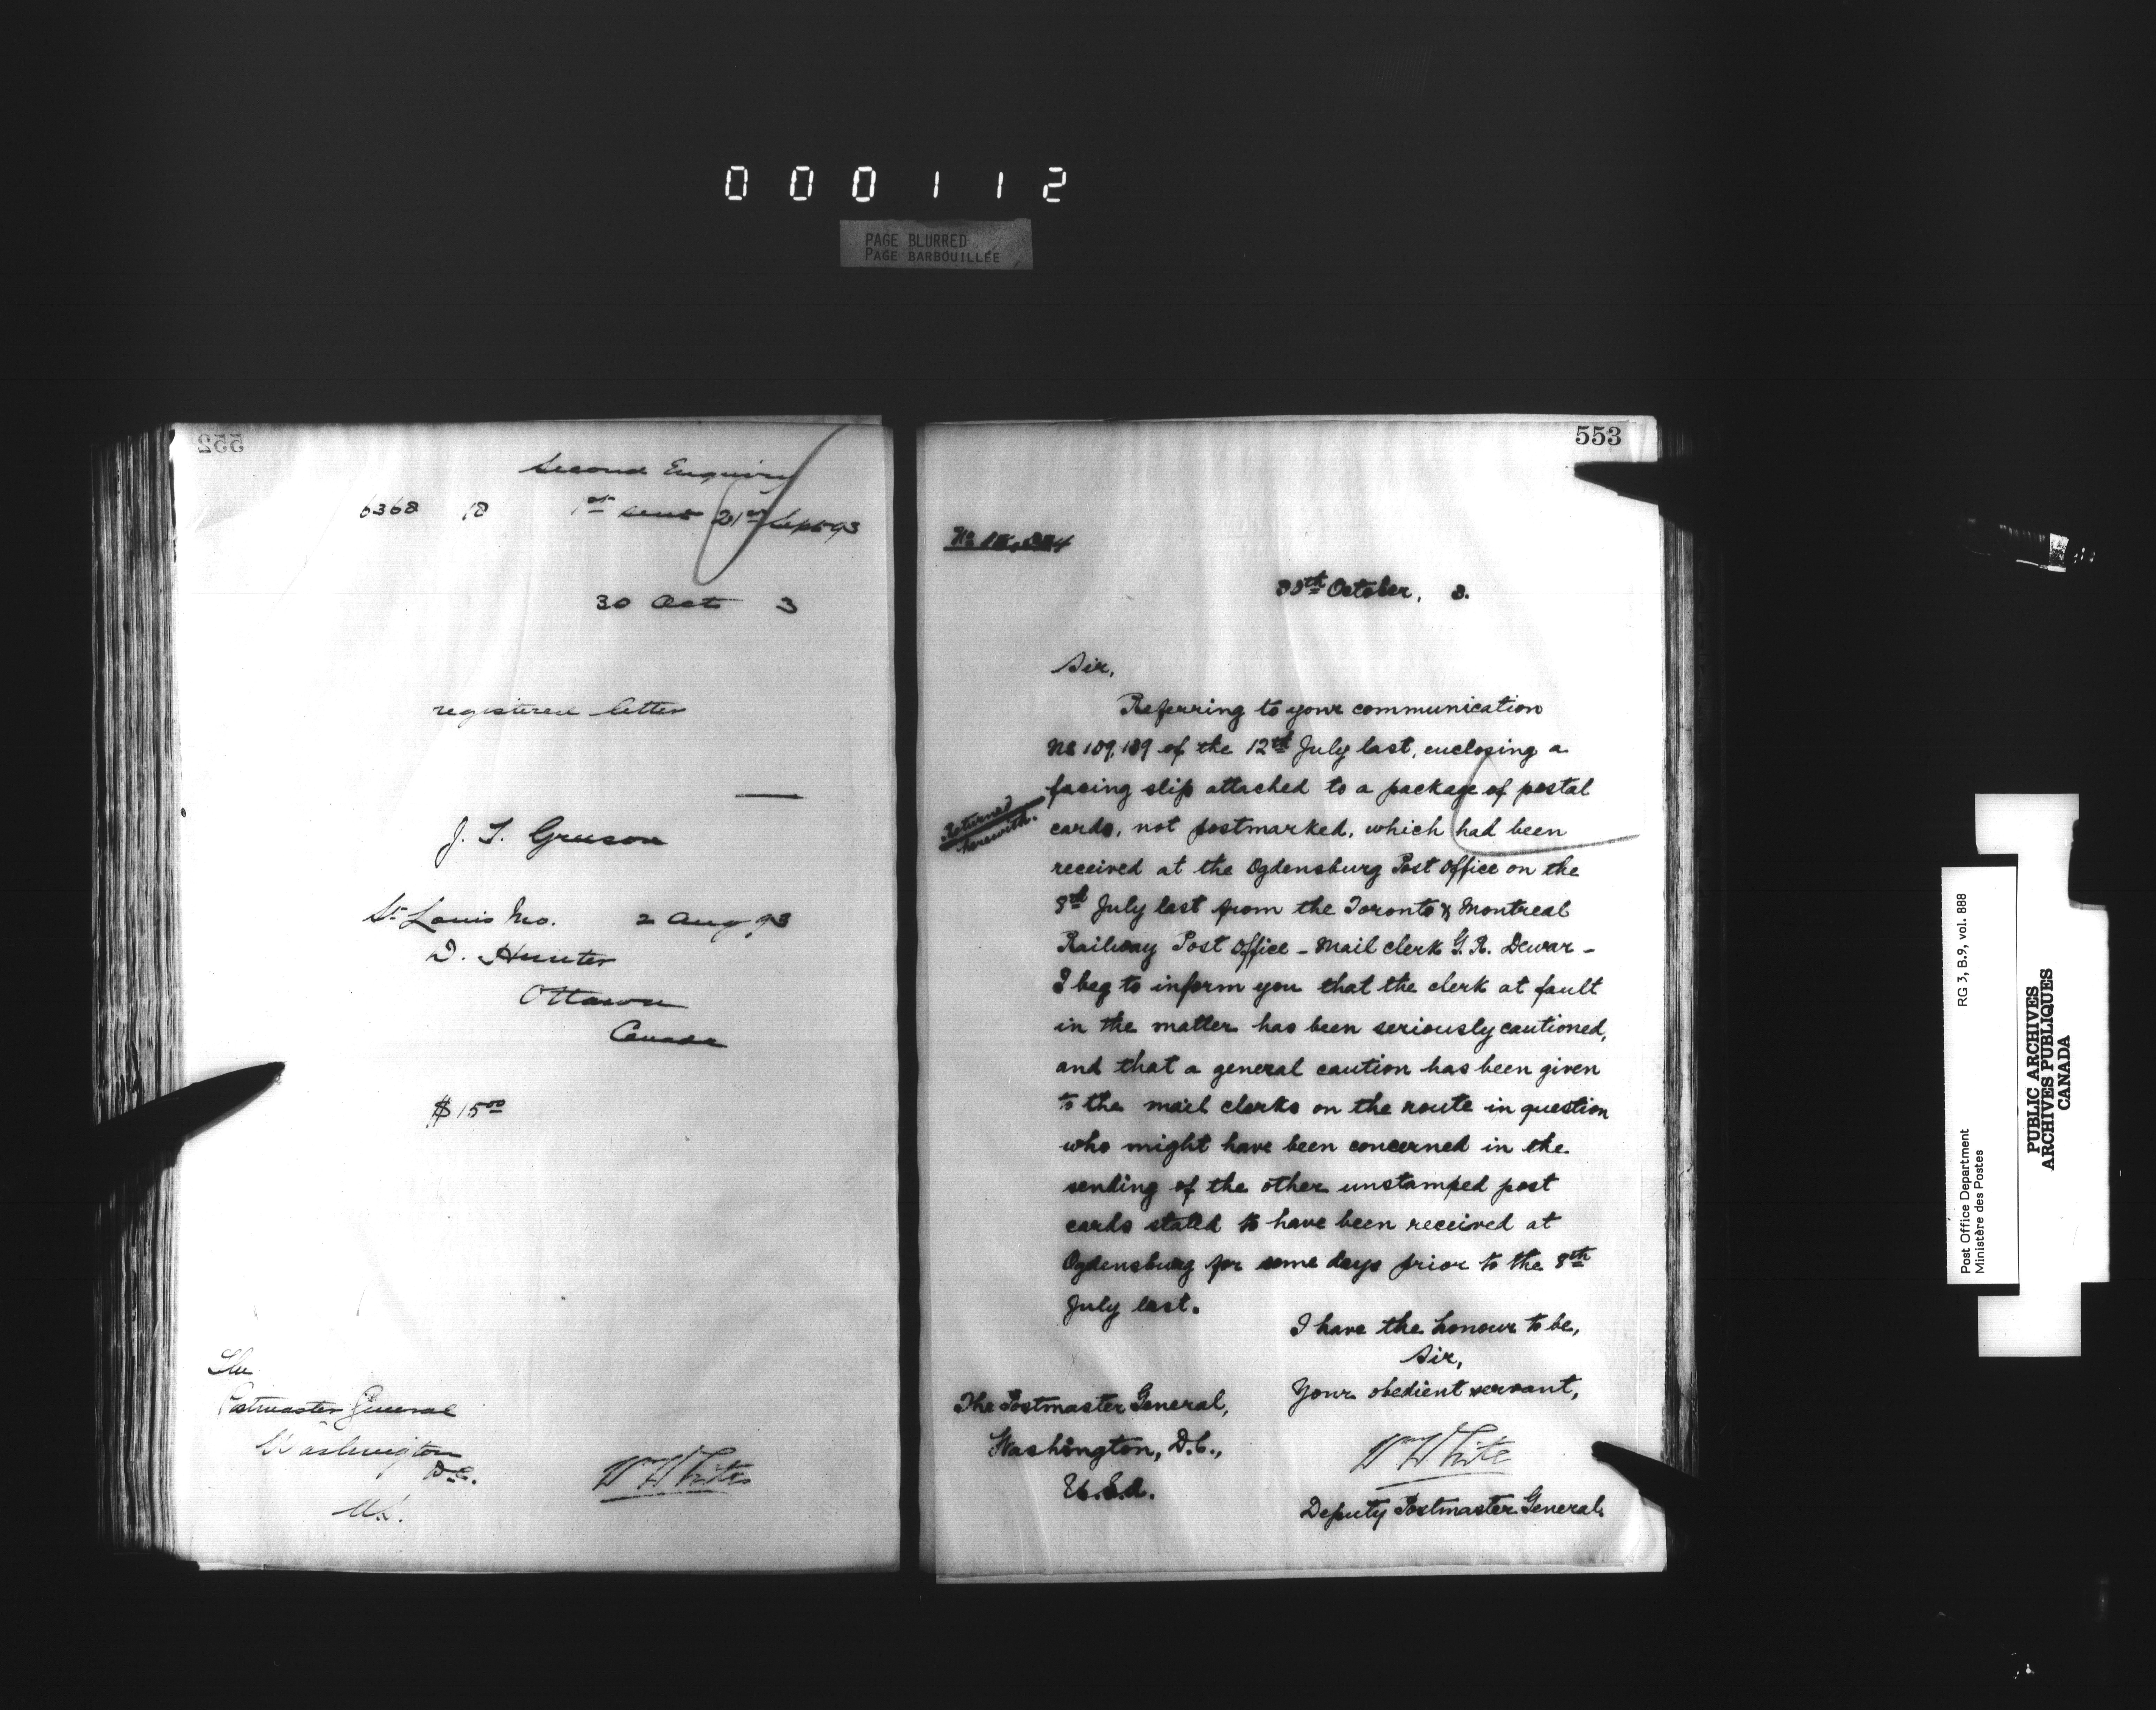 000112
PAGE BLURRED
PAGE BARBOUILLÉE
552
Second Enquiry
6368 18 1st sent 21st Sept 93
30 Oct 3
registered letter
J. T. Gruson
St Louis Mo. 2 Aug 93
D. Hunter
Ottawa
Canada
$15.00
The
Postmaster General
Washington
D.C.
U.S.
Wm White
553
No
30th October, 3.
Sir,
Referring to your communication
No 109,189 of the 12th July last, enclosing a
facing slip attached to a package of postal
cards, not postmarked, which had been
received at the Ogdensburg Post Office on the
8th July last from the Toronto & Montreal
Railway Post Office - Mail clerk G. R. Dewar -
I beg to inform you that the clerk at fault
in the matter has been seriously cautioned,
and that a general caution has been given
to the mail clerks on the route in question
who might have been concerned in the
sending of the other unstamped post
cards stated to have been received at
Ogdensburg for some days prior to the 8th
July last.
Returned
herewith.
I have the honour to be,
Sir,
Your obedient servant,
Wm White
Deputy Postmaster General.
The Postmaster General,
Washington, D.C.,
U.S.A.
Post Office Department
Ministère des Postes
RG 3, B.9, vol. 888
PUBLIC ARCHIVES
ARCHIVES PUBLIQUES
CANADA